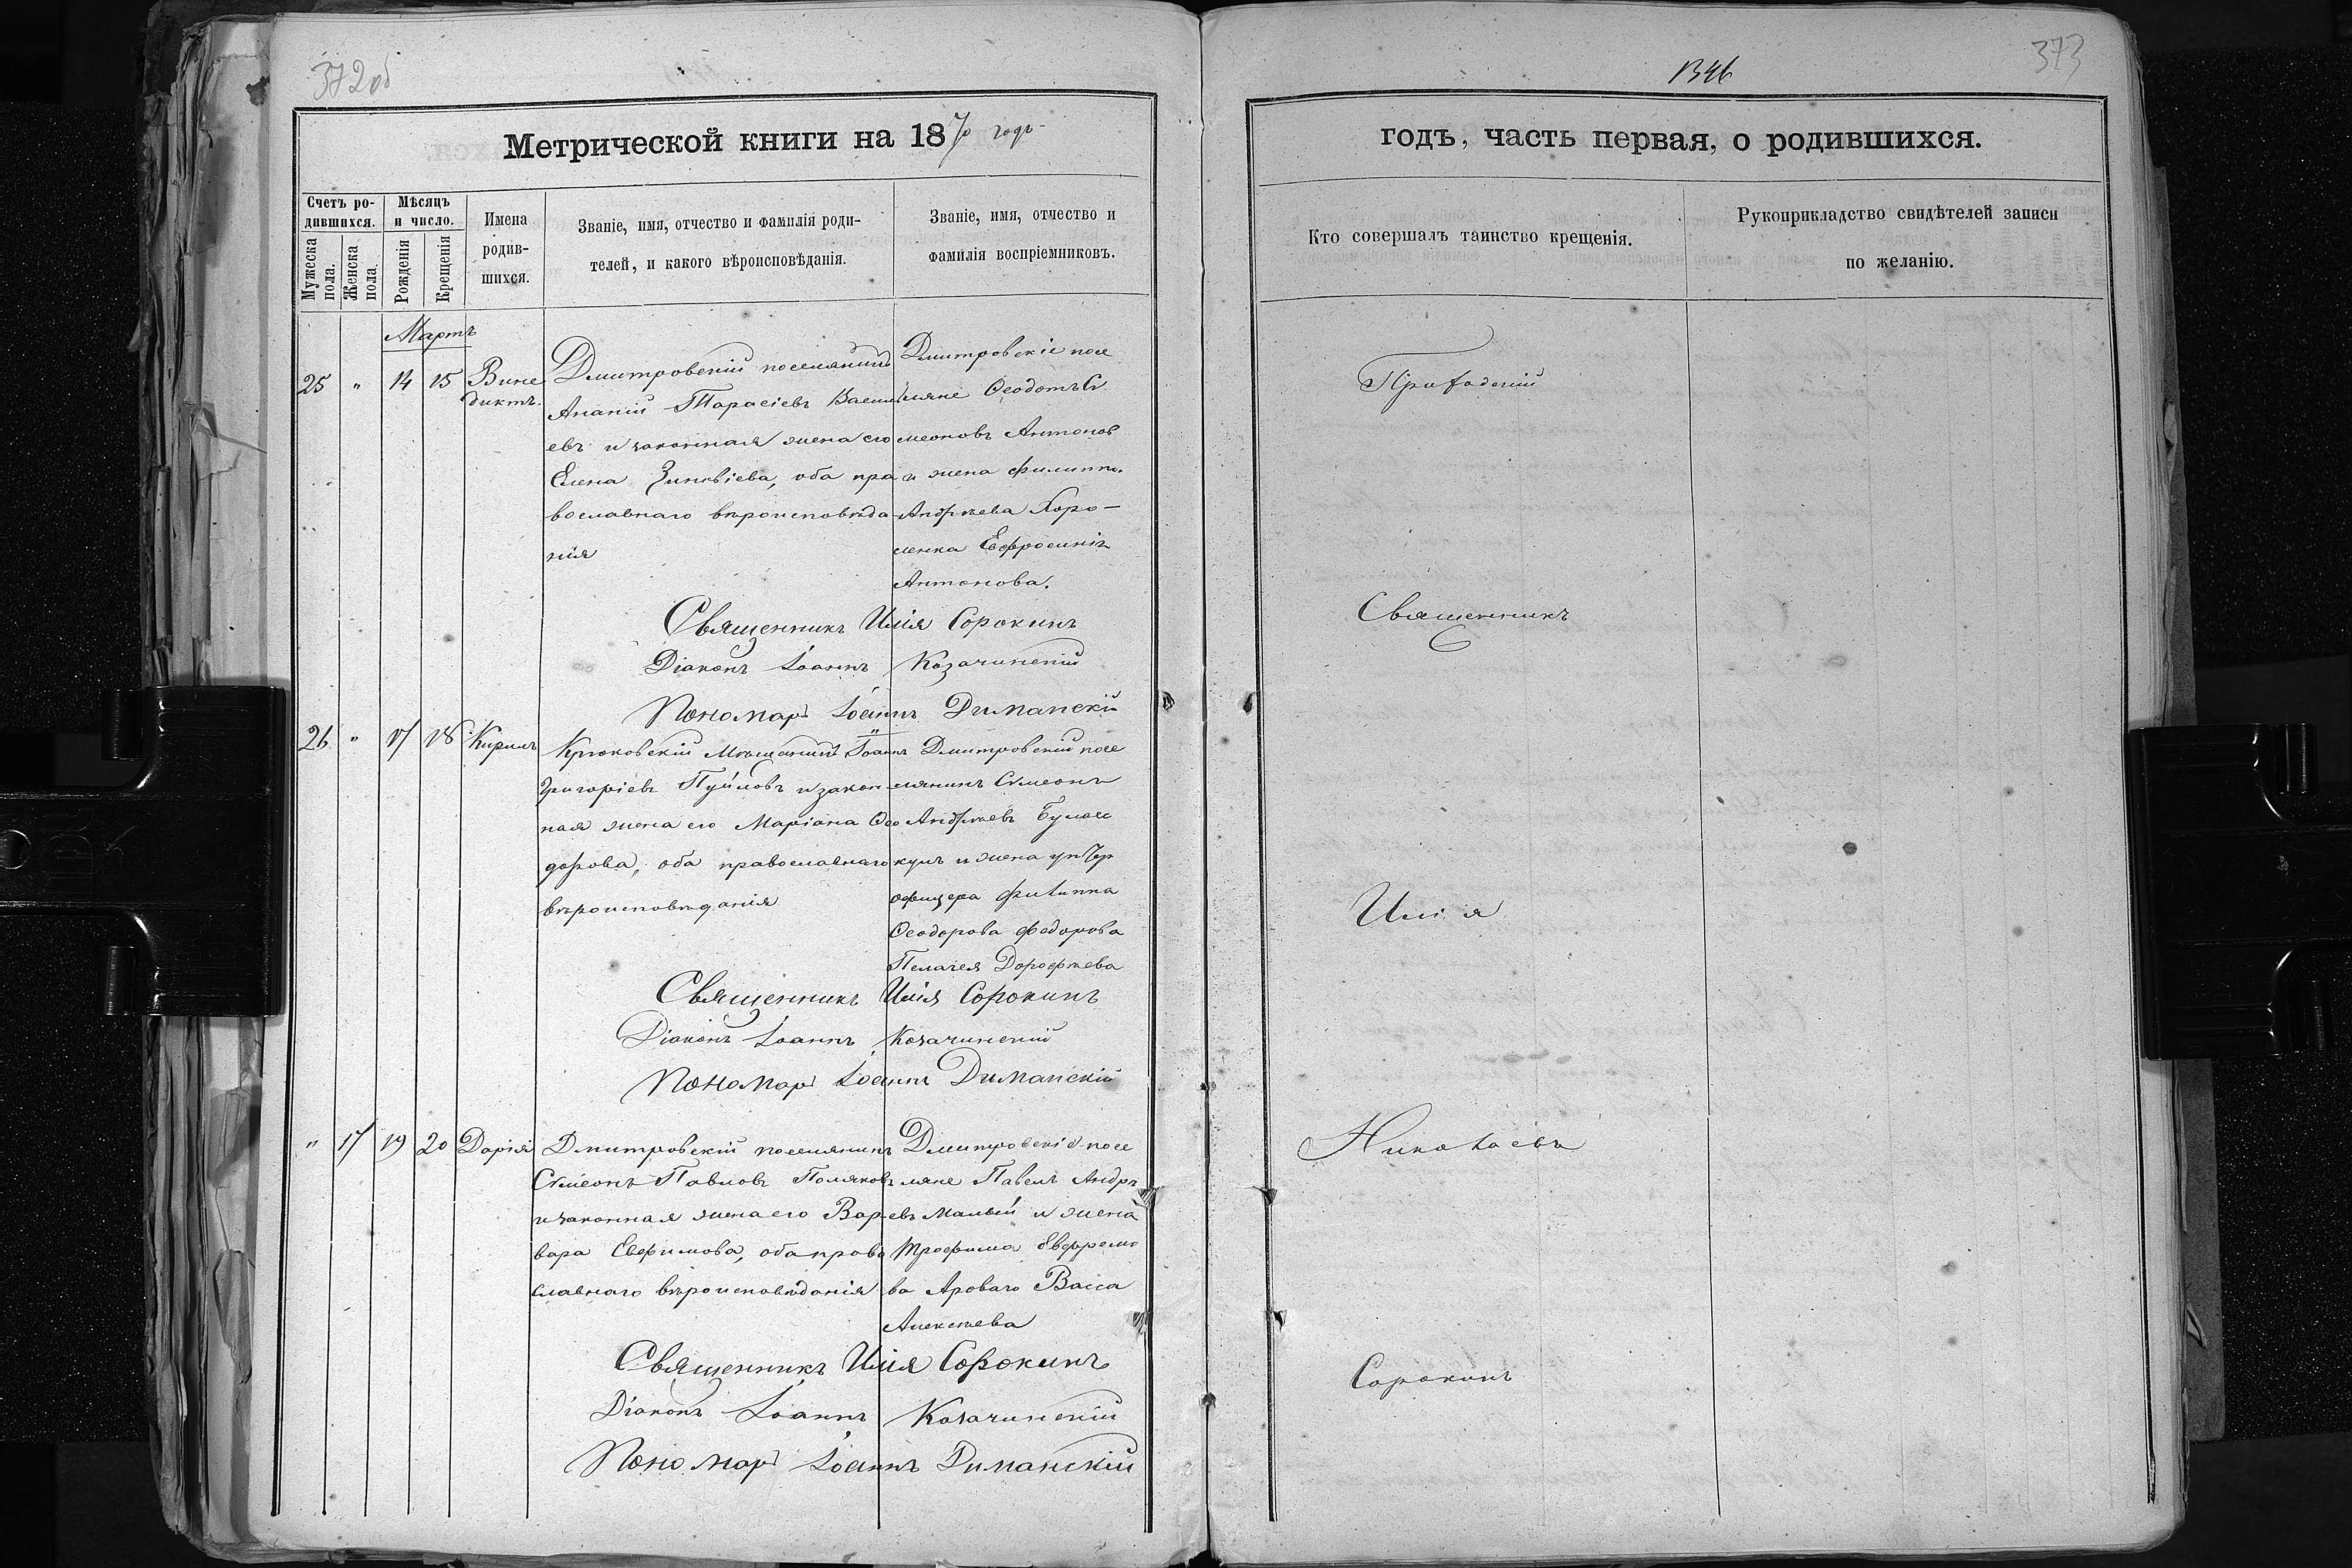 372об
1346
373
Метрической книги на 1870 годъ
годъ, часть первая, о родившихся.
Счетъ ро-
дившихся.
Мужеска
пола.
Женска
пола.
Мѣсяцъ
и число.
Рожденія
Крещенія
Имена
родив-
шихся.
Званіе, имя, отчество и фамилія роди-
телей, и какого вѣроисповѣданія.
Званіе, имя, отчество и
фамилія воспріемниковъ.
Кто совершалъ таинство крещенія.
Рукоприкладство свидѣтелей записи
по желанію.
Мартъ
25 " 14 15 Вине
диктъ.
Дмитровскій поселянинъ
Ананій Тарасіевъ Васил
евъ и законная жена его
Елена Зиновіева, оба пра
вославнаго вѣроисповѣда
нія
Дмитровскіе посе
ляне Ѳеодотъ Си
меоновъ Антонов
и жена Филиппа
Андрѣева Хоро-
ленка Евфросинія
Антонова.
Священникъ Илія Сорокинъ
Діаконъ Іоаннъ Козачинскій
Пономарь Іоаннъ Диманскій
26 " 17 18 Кирилъ
Крюковскій Мѣщанинъ Іоаннъ
Григоріевъ Пуйловъ и закон
ная жена его Маріана Ѳео
дорова, оба православнаго
вѣроисповѣданія
Дмитровскій посе
лянинъ Симеонъ
Андрѣевъ
и жена унтер
офицера Филиппа
Ѳеодорова Федорова
Пелагея Дорофѣева
Священникъ Илія Сорокинъ
Діаконъ Іоаннъ Козачинскій
Пономарь Іоаннъ Диманскій
" 17 19 20 Дарія
Дмитровскій поселянинъ
Симеонъ Павловъ Поляковъ
и законная жена его Вар
вара Евфимова, оба право
славнаго вѣроисповѣданія
Дмитровскіе посе
ляне Павелъ Андрѣ
евъ Малый и жена
Трофима Евфремо
ва Яроваго Васса
Алексѣева
Священникъ Илія Сорокинъ
Діаконъ Іоаннъ Козачинскій
Пономарь Іоаннъ Диманскій
Священникъ
Илія
Николаевъ
Сорокинъ